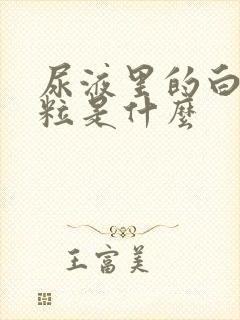 尿液里的白
粒是什麼
王富美